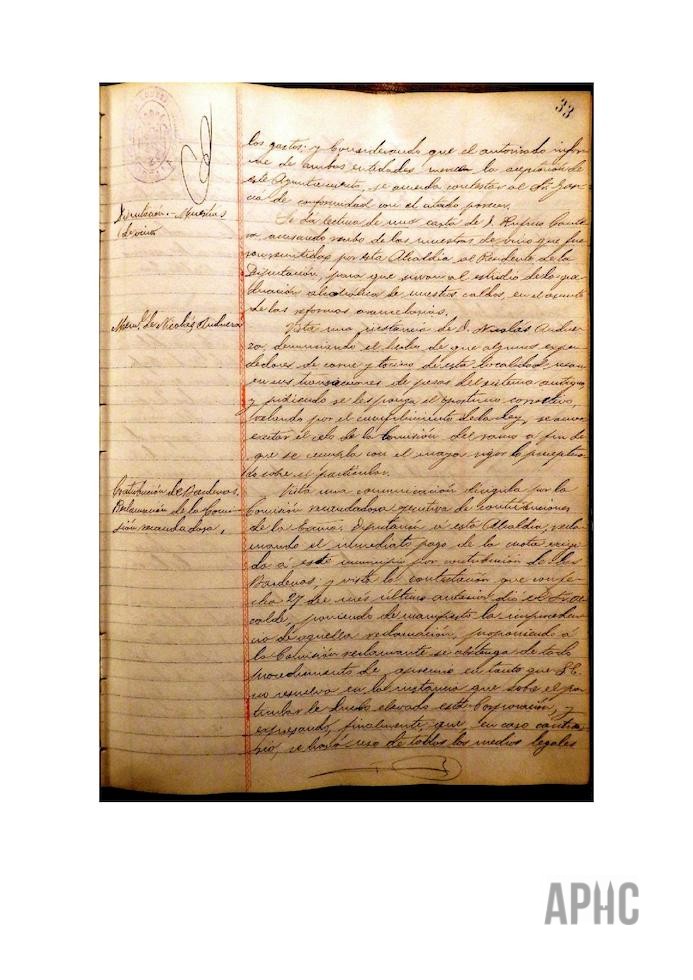 33
los gastos; y Considerando que el autorizado infor-
me de ambas entidades merece la
este Ayuntamiento, se acuerda contestar al Sr. Gar-
cía de conformidad con el citado parecer.
Diputación.- Muestras
de vino
Se dá lectura de una carta de D.
acusando recibo de las muestras de vino que fue-
ron remitidas por esta Alcaldía al Presidente de la
Diputación, para que sirvan al estudio de la gra-
duación alcohólica de nuestros caldos, en el asunto
de las reformas arancelarias.
de Nicolás Andueza
Vista una instancia de D. Nicolás Andue-
za, denunciando el hecho de que algunos expen-
dedores de carne y tocino de esta localidad usan
en sus transaciones de pesas del sistema antiguo
y pidiendo se les ponga el oportuno correctivo
velando por el cumplimiento de la ley, se acuer
excitar el celo de la Comisión del ramo a fin de
que se cumpla con el mayor rigor lo preceptua-
do sobre el particular.
Contribución de Bardenas.
Reclamación de la Comi-
sión recaudadora.
Vista una comunicación dirigida por la
Comisión recaudadora ejecutiva de contribuciones
de la Excma. Diputación a esta Alcaldía, recla-
mando el inmediato pago de la cuota exigi-
da á este municipio por contribución de las
Bardenas; y vista la contestación que con fe-
cha 27 de mes último anterior dió el Sr. Al-
calde, poniendo de manifiesto la improceden-
cia de aquella reclamación, proponiendo á
la Comisión reclamante se abstenga de todo
procedimiento de apremio en tanto que S.E.
no resuelva en la instancia que sobre el par-
ticular le tiene elevado esta Corporación, y
expresando, finalmente, que en caso contra-
rio, se hará uso de todos los medios legales
APHC